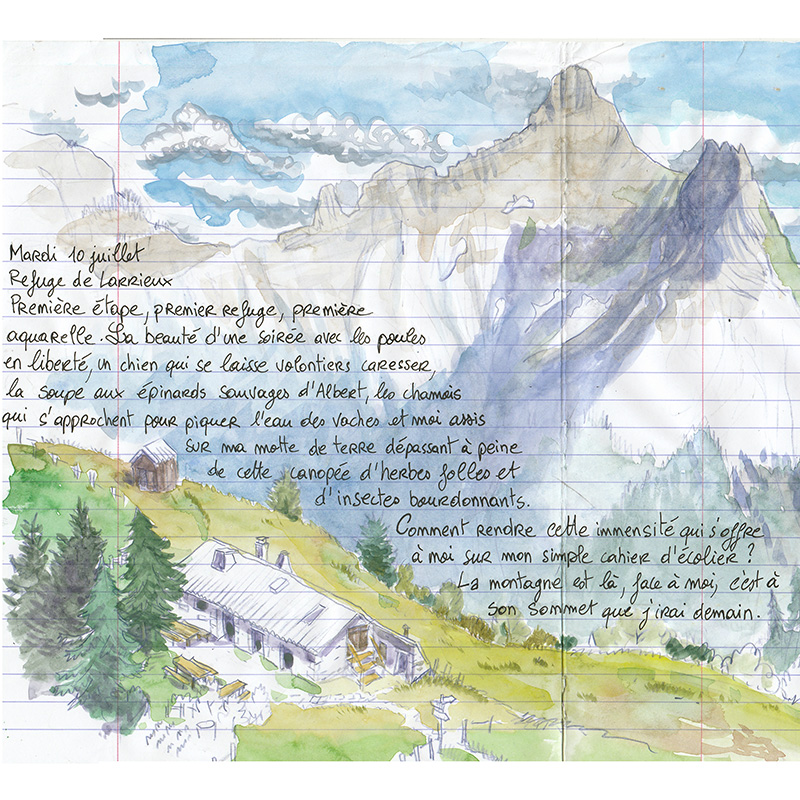 Mardi 10 juillet
Refuge de Larrieux
Première étape, premier refuge, première
aquarelle. La beauté d'une soirée avec les poules
en liberté, un chien qui se laisse volontiers caresser,
la soupe aux épinards sauvages d'Albert, les chamois
qui s'approchent pour piquer l'eau des vaches et moi assis
sur ma motte de terre dépassant à peine
de cette canopée d'herbes folles et
d'insectes bourdonnants.
Comment rendre cette immensité qui s'offre
à moi sur mon simple cahier d'écolier ?
La montagne est là, face à moi, c'est à
son sommet que j'irai demain.